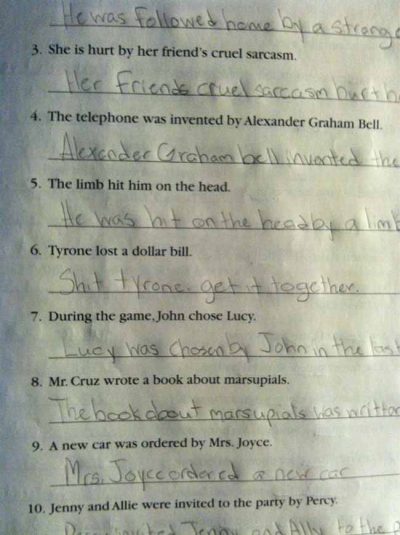 He was followed home by a strange
3. She is hurt by her friend's cruel sarcasm.
Her friends cruel sarcasm hurt h
4. The telephone was invented by Alexander Graham Bell.
Alexender Graham bell invented the
5. The limb hit him on the head.
He was hit on the head by a limb
6. Tyrone lost a dollar bill.
Shit tyrone. get it together.
7. During the game, John chose Lucy.
Lucy was chosen by John in the
8. Mr. Cruz wrote a book about marsupials.
The book about marsupials was written
9. A new car was ordered by Mrs. Joyce.
Mrs. Joyce ordered a new car
10. Jenny and Allie were invited to the party by Percy.
Percy invited Jenny and Ally to the p